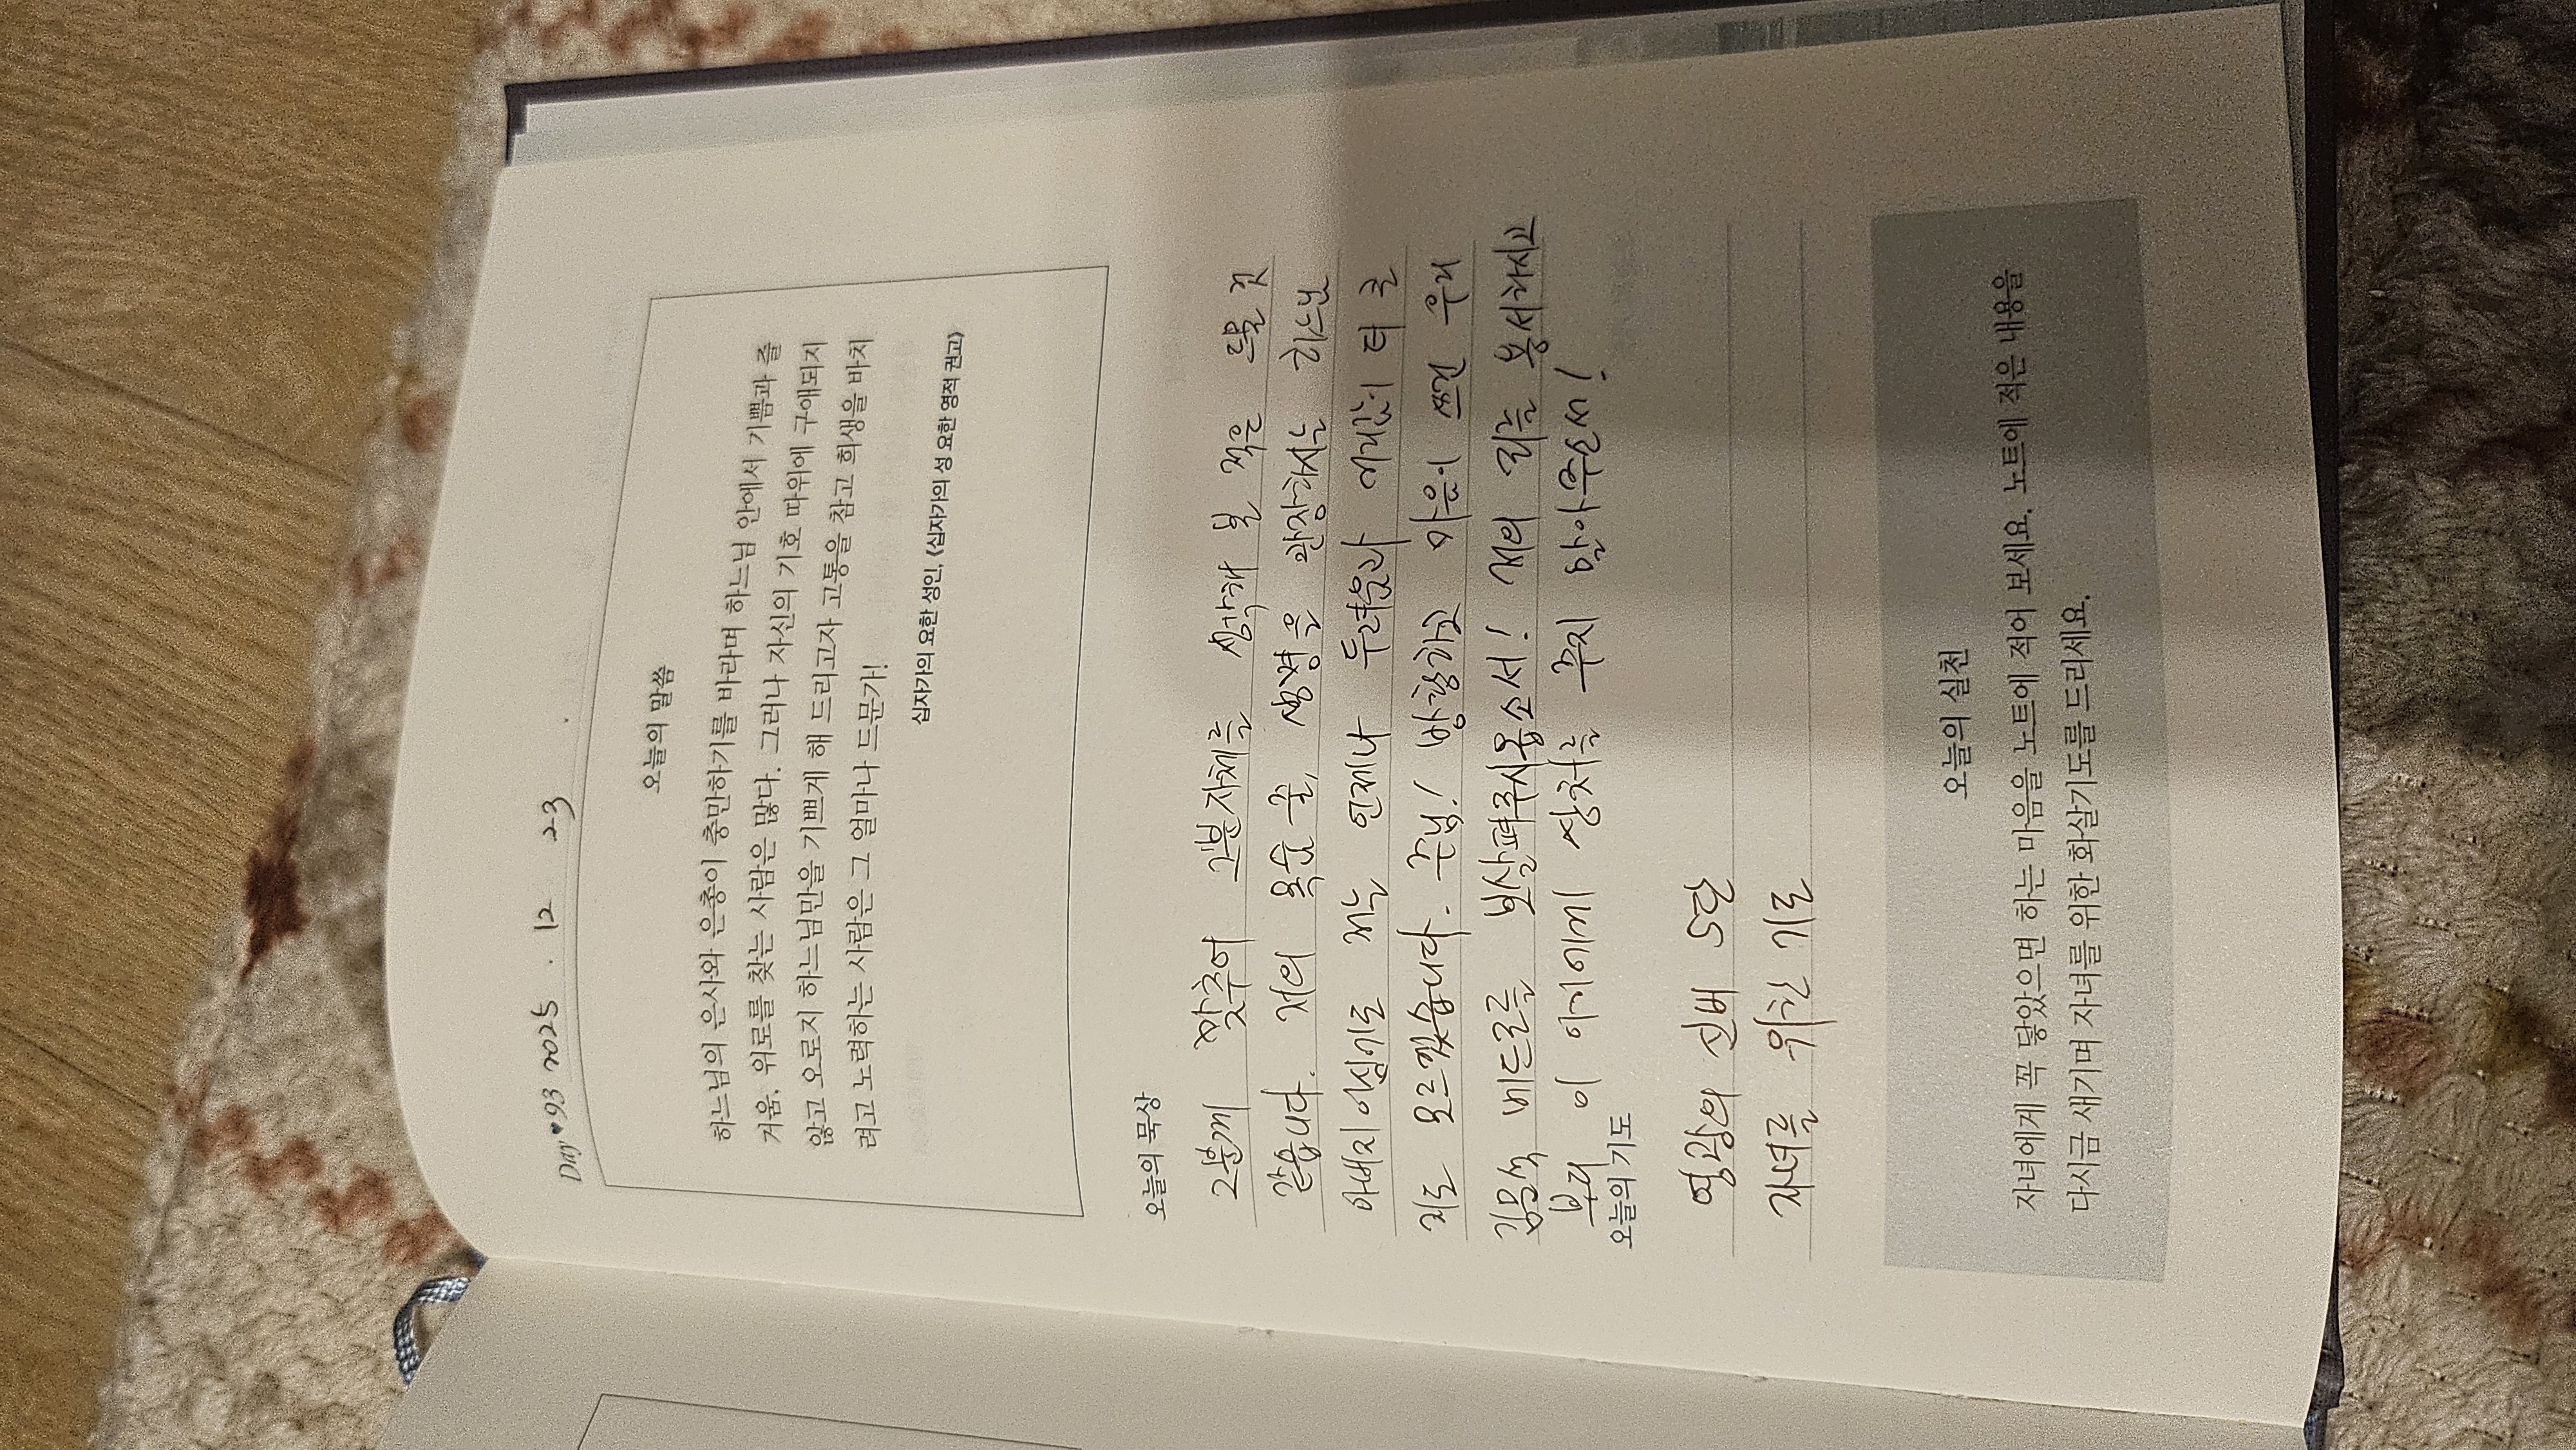 Day♥93 2025 . 12 23 .
오늘의 말씀
하느님의 은사와 은총이 충만하기를 바라며 하느님 안에서 기쁨과 즐
거움, 위로를 찾는 사람은 많다. 그러나 자신의 기호 따위에 구애되지
않고 오로지 하느님만을 기쁘게 해 드리고자 고통을 참고 희생을 바치
려고 노력하는 사람은 그 얼마나 드문가!
십자가의 요한 성인, 《십자가의 성 요한 영적 권고》
오늘의 묵상
그분께 맞추어 그분자체를 생각해 본 적은 드물 것
같습니다. 저의 목숨 줄, 생명을 관장하시는 하느님
아버지이심기도 저는 언제나 두려움과 거리감이 더 큰
지도 모르겠습니다. 주님! 방황하고 마음이 쓰인 우리
김용석 베드로를 보살펴주시옵소서! 제의 죄를 용서하시고
부디 이 아이에게 상처를 주지 말아주소서!
오늘의 기도
영광의 신비 5단
자녀를 위한 기도
오늘의 실천
자녀에게 꼭 닿았으면 하는 마음을 노트에 적어 보세요. 노트에 적은 내용을
다시금 새기며 자녀를 위한 화살기도를 드리세요.